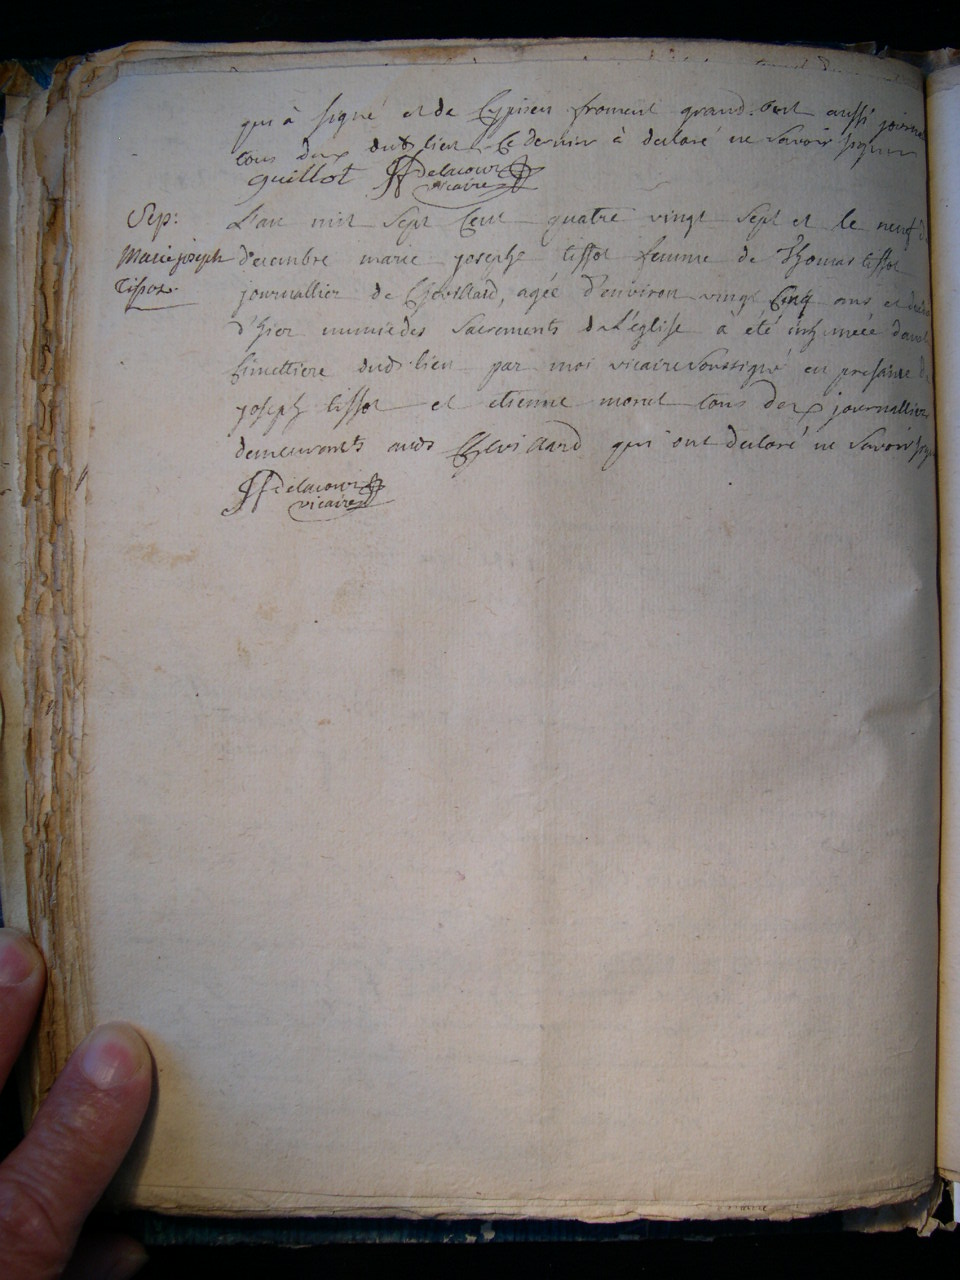 qui à signé et de Cyprien froment grand oncle aussi journa
tous deux dud. lieu Ce dernier à declaré ne Savoir signer
Guillot Delacour
vicaire
Sep: L'an mil Sept Cent quatre vingt Sept et le neuf
Marie joseph decembre marie josephe tissot femme de Thomas tissot
Tissot journallier de Chevillard, agée d'environ vingt Cinq ans et
d'hier munie des Sacrements de L'église a été inhumée dans le
Cimettiere dud. lieu par moi vicaire Soussigné en presence de
joseph tissot et etienne moret tous deux journallier
demeurants aud Chevillard qui ont declaré ne Savoir sign
Delacour
vicaire